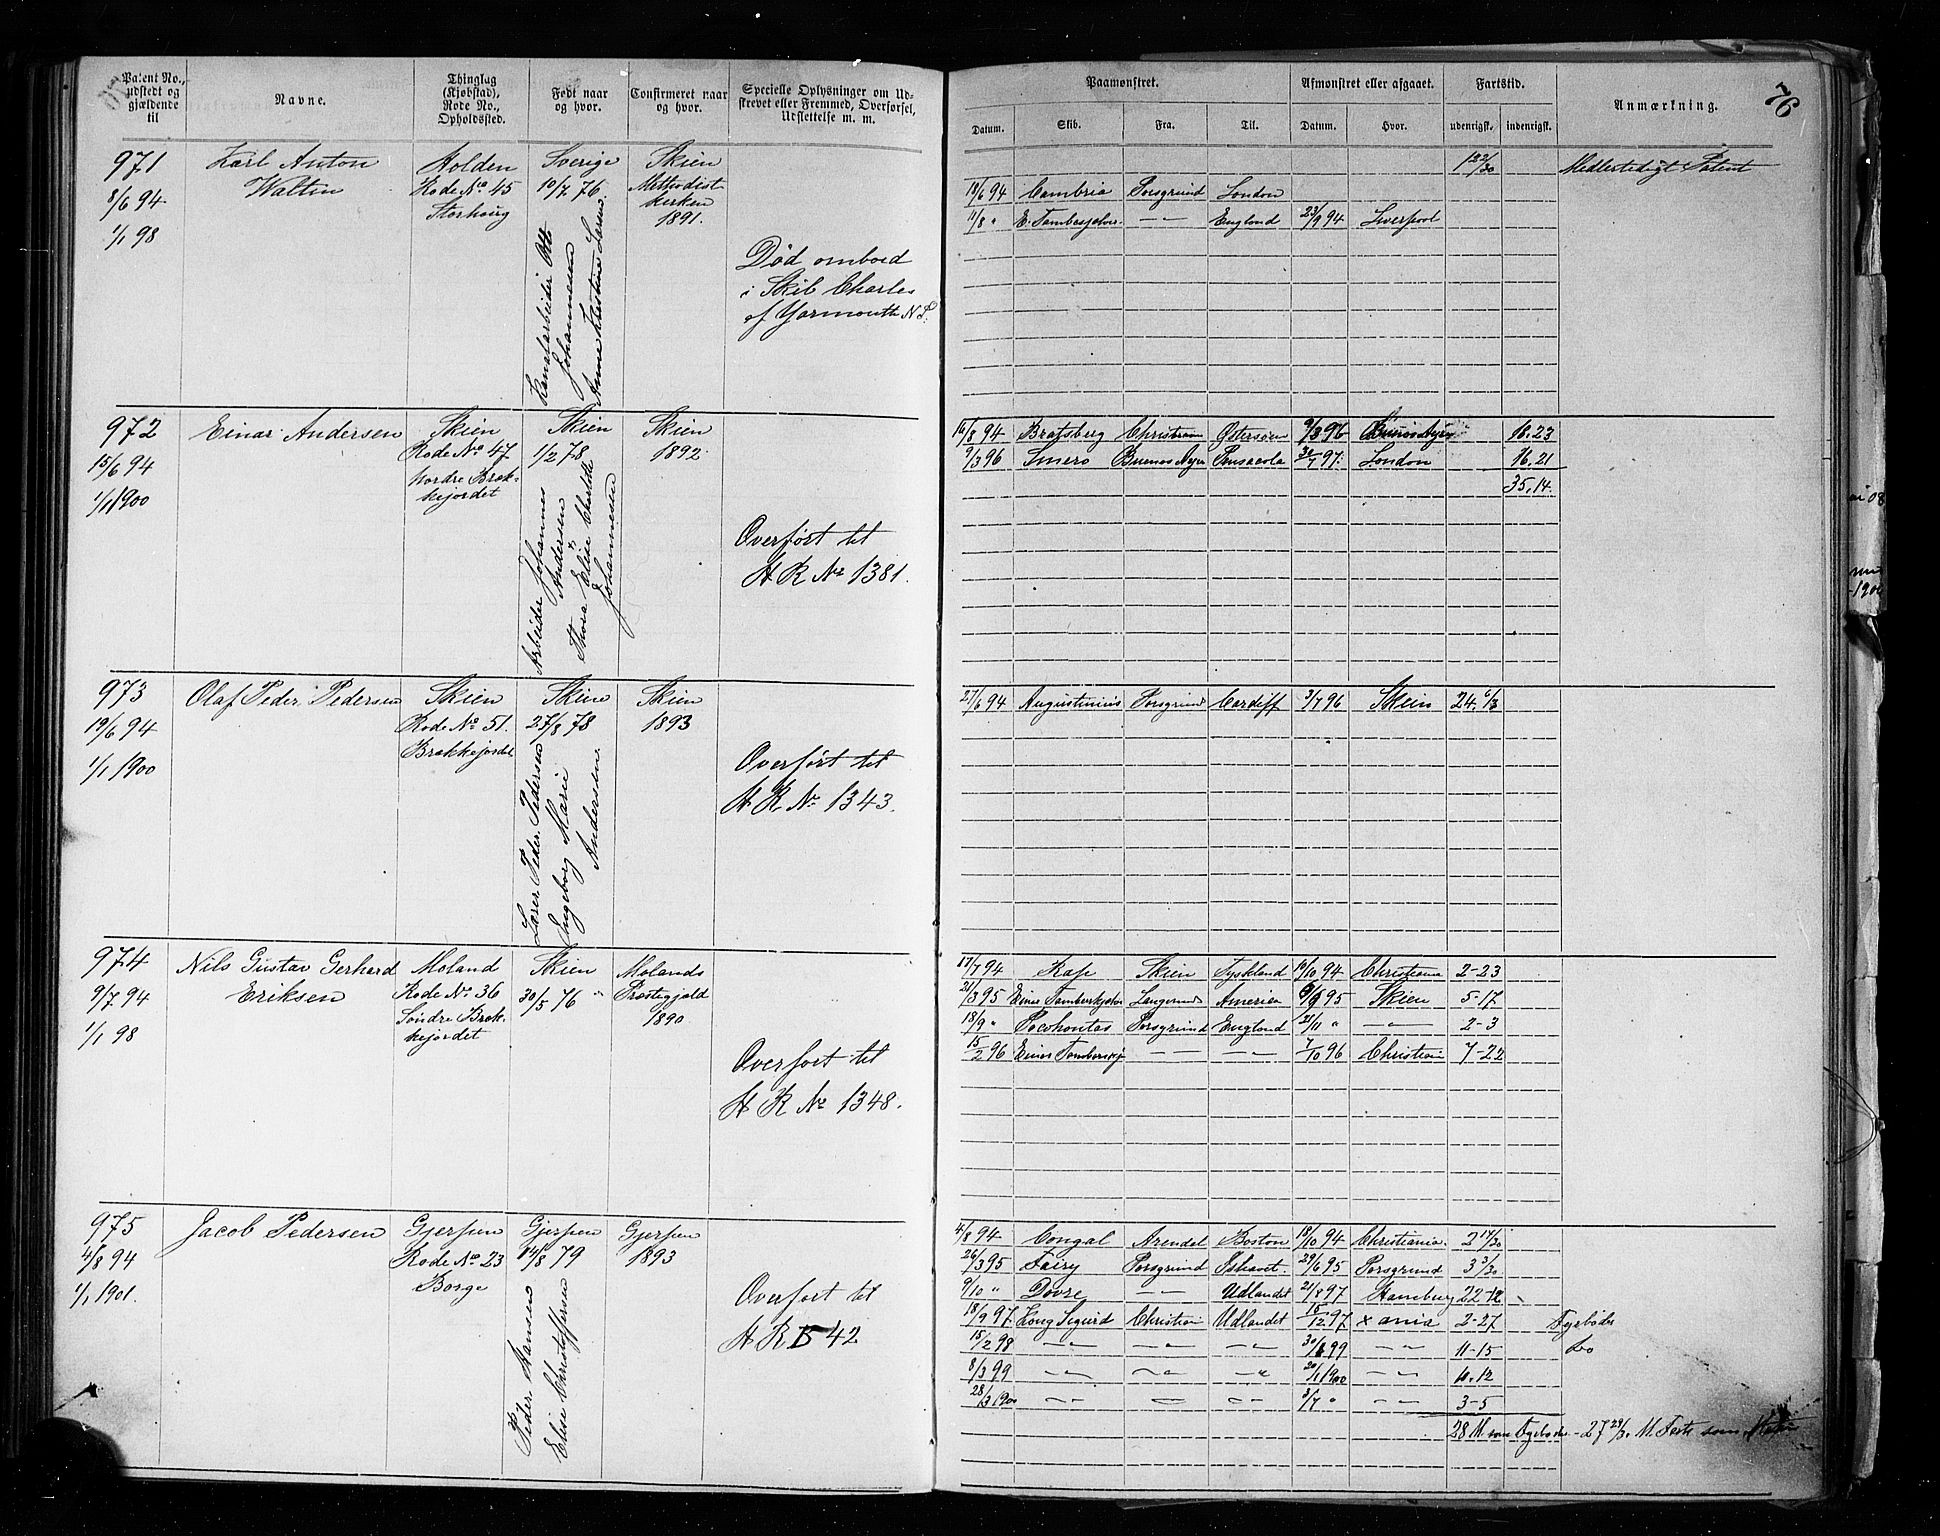 Patent No., udstedt og gjældende til
Navne.
Thinglag (Kjøbstad), Rode No., Opholdssted.
Født naar og hvor.
Confirmeret naar og hvor.
Specielle Oplysninger om Udskrevet eller Fremmed, Overførsel, Udslettelse m. m.
Paamønstret.
Afmønstret eller afgaaet.
Fartstid.
Anmærkning.
76
Datum. Skib. Fra. Til. Datum. Hvor. udenrigsk. indenrigsk.
971
8/6 94
1/1 98
Karl Anton
Waltin
Holden
Rode No 45
Sverige
10/7 76
Kanalarbeider
Johannesen
Skien
Methodist
kirken
1891.
Død ombord
i Skib Charles
of Yarmouth N S.
Midlertidigt Patent
18/6 94 Cambria Porsgrund London
11/8 " England 23/9 94 Liverpool
972
15/6 94
1/1 1900
Einar Andersen
Skien
Rode No 47
Nordre Brek-
kejordet
Skien
1/2 78
Arbeider Johannes
Andersen
Johannesen
Skien
1892
Overført til
A R No 1381.
16/8 94 Bratsberg Christiania Østersøen 9/3 96 Buenos Ayres 16.23
9/3 96 Smerø Buenos Ayres Pensacola 97 London 16.21
35.14.
973
19/6 94
1/1 1900
Olaf Peder Pedersen
Skien
Rode No 51.
Brekkejordet
Skien
27/8 78
Peder Pedersen
Ingeborg Marie
Andersen.
Skien
1893
Overført til
A R No 1343.
27/6 94 Augustinius Porsgrund Cardiff 3/7 96 Skien 24.
974
9/7 94
1/1 98
Nils Gustav Gerhard
Eriksen
Moland
Rode No 36
Søndre Brek-
kejordet
Skien
30/5 76
Molands
Præstegjeld
1890
Overført til
A R No 1348.
17/7 94 Kap Skien Tyskland 19/10 94 Christiania 2-23
21/3 95 Einar Tamberskjelver Langesund Amerika 95 Skien 5-17
18/9 " Pocohontas Porsgrund England 21/11 " 2-3
15/2 96 Einar Tambersskj 7/10 96 Christiania 7-22
975
4/8 94
1/1 1901.
Jacob Pedersen
Gjerpen
Rode No 23
Borge
Gjerpen
14/8 79
Peder Hansen
Elise Christoffersen
Gjerpen
1893
Overført til
A R B 42
4/8 94 Congal Arendal Boston 18/10 94 Christiania. 2 17/30
26/3 95 Fairy Porsgrund Ishavet. 29/6 95 Porsgrund 3 3/30
9/10 " Dovre Udlandet 21/8 97 Hamburg 22-12
18/9 97 Kong Sigurd Christian Udlandet 15/12 97 xania 2-27 Fyrbøder
15/2 98 99 11-15 Do
8/3 99 20/1 1900 10.12
28/3 1900 3/7 " 3-5
28 M som Fyrbøder - 27 29/30 M. Farts som